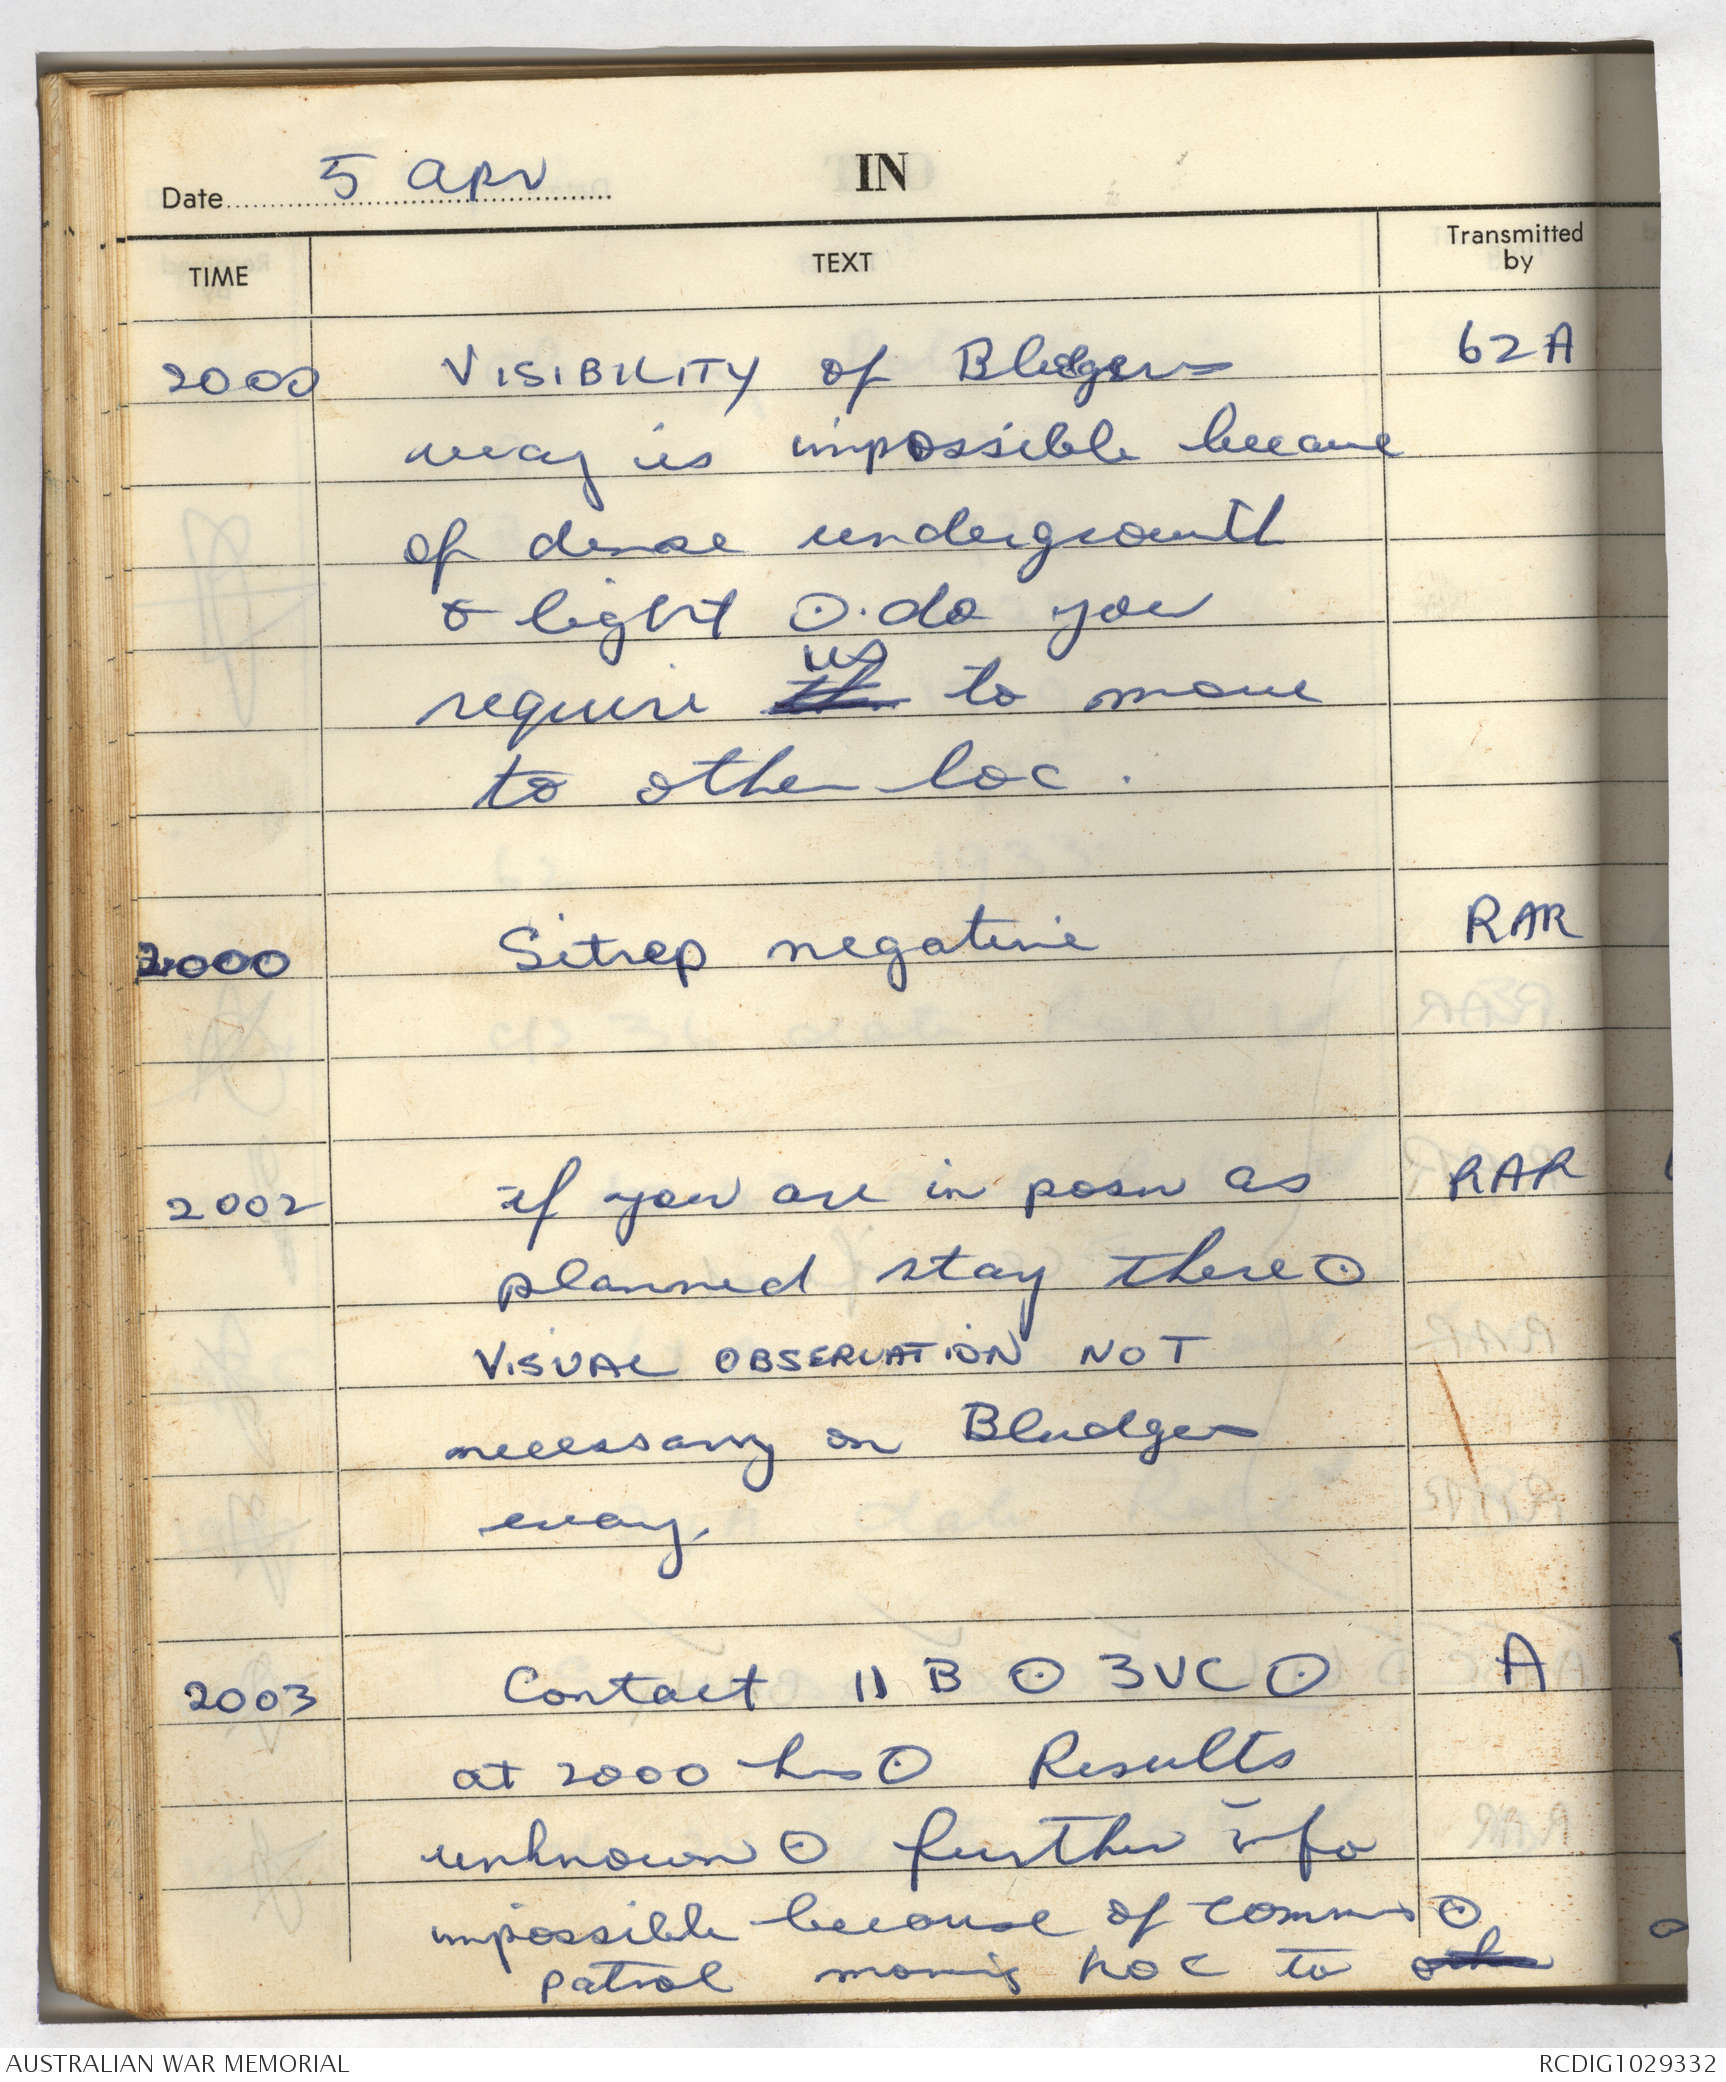 Date 5 Apr
IN
TIME
TEXT
Transmitted by
2000 VISIBILITY of Bludgers 62A
way is impossible because
of dense undergrowth
& light ⊙. do you
require us to move
to other loc.
2000 Sitrep negative RAR
2002 if you are in posn as RAR
planned stay there ⊙
VISUAL OBSERVATION NOT
necessary on Bludgers
way.
2003 Contact 11 B ⊙ 3VC ⊙ A
at 2000 hrs ⊙ Results
unknown ⊙ further info
impossible because of comms ⊙
patrol moving LOC to
AUSTRALIAN WAR MEMORIAL
RCDIG1029332